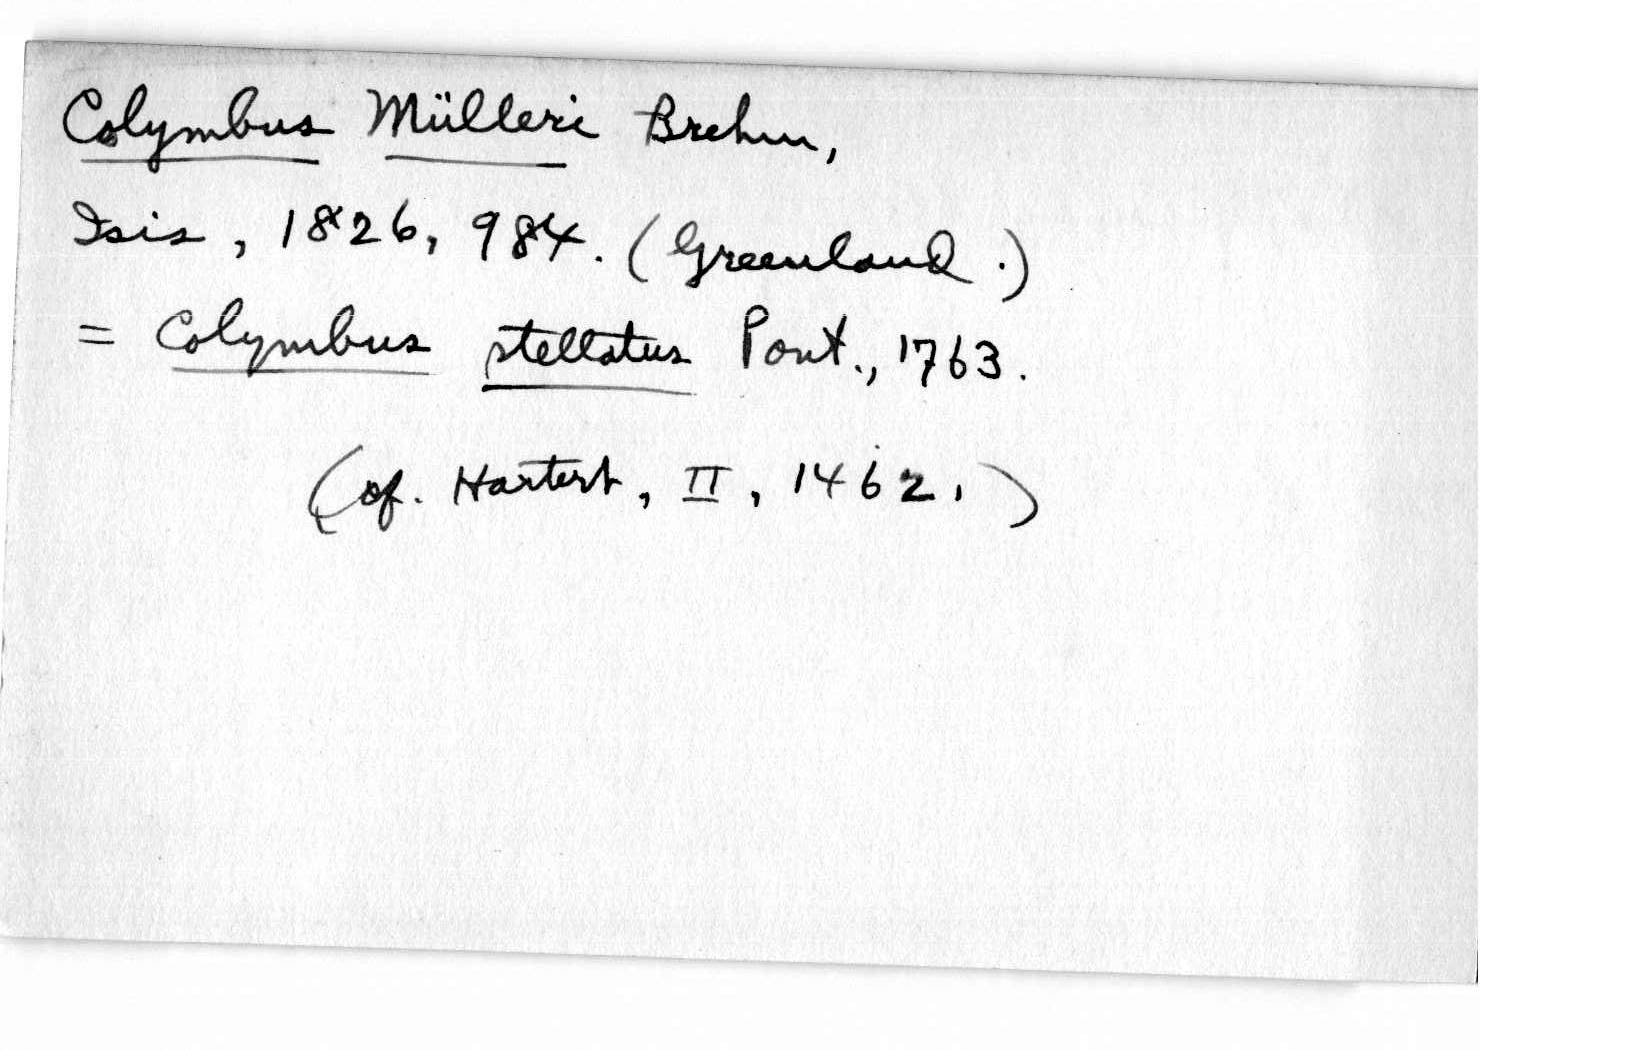 Colymbus Mülleri Brehm,
Isis, 1826, 984. (Greenland.)
= Colymbus stellatus Pont., 1763.
(cf. Hartert, II, 1462.)